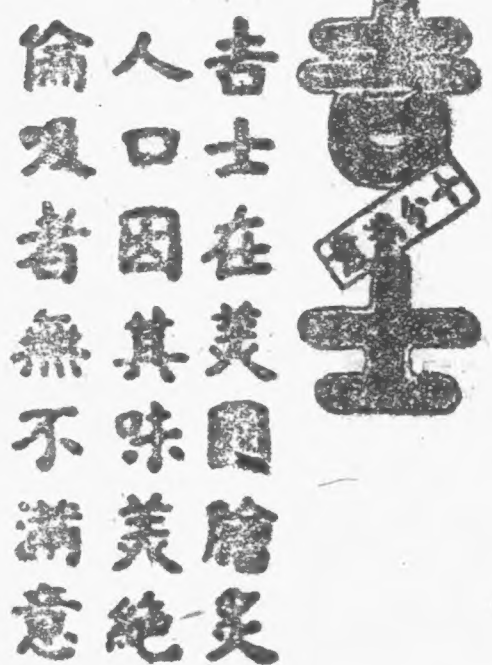 吉士
十分滿意
吉士在美國膾炙
人口因其味美絶
倫吸者無不滿意